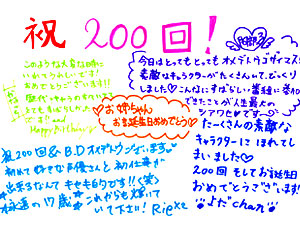 祝 200回!
このような大事な時に
いれてうれしいです!
おめでとうございます!!
です!! and
Happy Birthday
お姉ちゃん
お誕生日おめでとう
今日はとってもとってもオメデトウゴザイマス
素敵なキャラクターがたくさんいて、びっくり
しました♡こんなにすばらしい
できたことが人生最大の
シアワセです〜♡
たーくさんの素敵な
キャラクターにほれてし
まいました♡
200回そしてお誕生日
おめでとうございます!
よだchan
祝200回&B.Dオメデトウございます♥
初めて好きな声優さんと初仕事が
出来るなんてキセキ的です!!(笑)
永遠の17歳★これからも輝いて
いて下さい! Rie